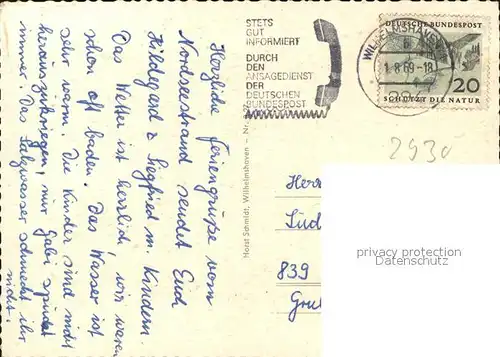 Herzliche Feriengrüße vom
Nordseestrand sendet Euch
Hildegard & Siegfried m. Kindern.
Das Wetter ist herrlich, wir waren
schon oft baden. Das Wasser ist
sehr warm. Die Kinder sind nicht
herauszukriegen, nur Gabi spuckt
immer. Das Salzwasser schmeckt ihr
nicht.
STETS
GUT
INFORMIERT
DURCH
DEN
ANSAGEDIENST
DER
DEUTSCHEN
BUNDESPOST
WILHELMSHAVEN
1.8.69-18
DEUTSCHE BUNDESPOST
20
SCHÜTZT DIE NATUR
2930
Horst Schmidt, Wilhelmshaven - Nr.
Herr
Lüd
839
Gru
privacy protection
Datenschutz